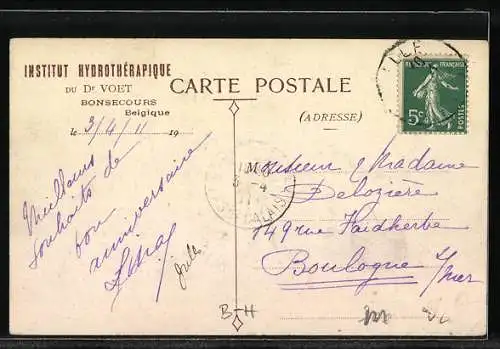 INSTITUT HYDROTHÉRAPIQUE
DU Dr VOET
BONSECOURS
Belgique
le 3/4/11 19
Meilleurs
souhaits de
bon
anniversaire
Jules
CARTE POSTALE
(ADRESSE)
LILLE
REPUBLIQUE FRANÇAISE
5c
POSTES
CALAIS
Monsieur Madame
Delozière
149 rue Faidherbe
Boulogne s/mer
B-H